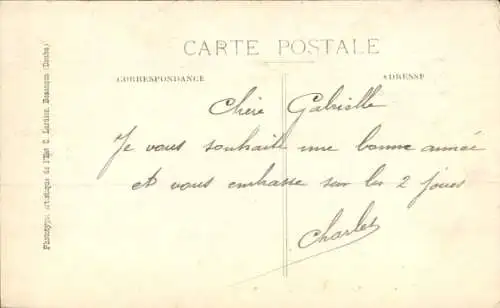 CARTE POSTALE
CORRESPONDANCE
ADRESSE
Chère Gabrielle
Je vous souhaite une bonne année
et vous embrasse sur les 2 joues
Charles
Phototypie artistique de l'Est C. Lardier, Besançon (Doubs)